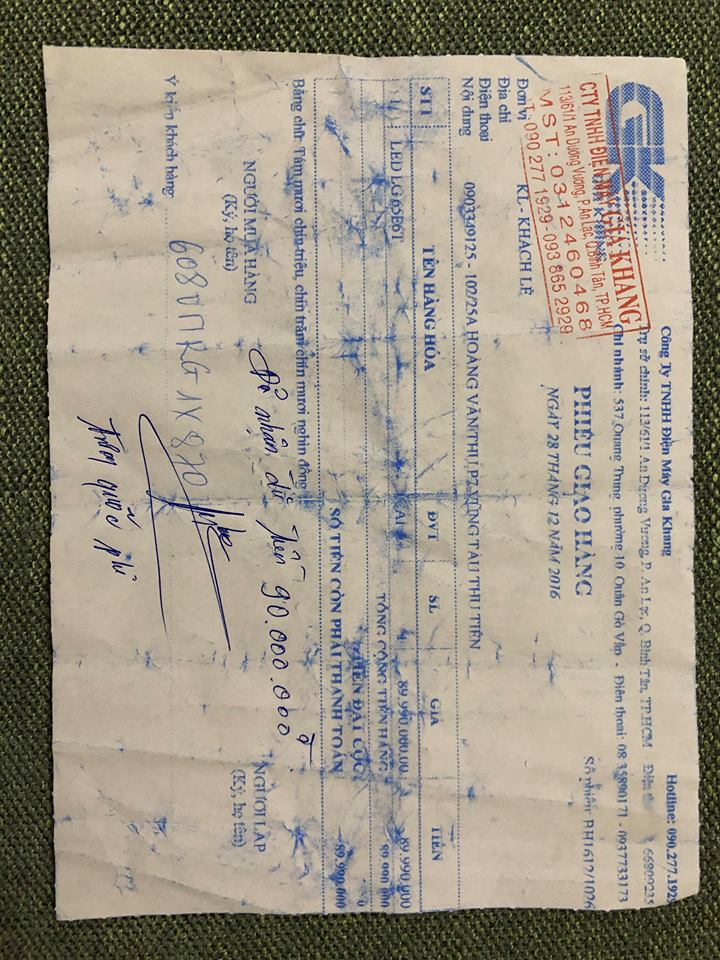 GK
Công Ty TNHH Điện Máy Gia Khang
Hotline: 090.277.1929
Trụ sở chính: 113/61/1 An Dương Vương, P. An Lạc, Q. Bình Tân, TP.HCM - Điện 66809235
Chi nhánh: 537 Quang Trung phường 10 Quận Gò Vấp - Điện thoại: 08 35890171 - 0937733173
CTY TNHH ĐIỆN MÁY GIA KHANG
113/61/1 An Dương Vương, P. An Lạc, Q.Bình Tân, TP.HCM
MST: 0312460468
T: 090 277 1929-093 865 2929
PHIẾU GIAO HÀNG
Số phiếu: BH1612/1026
NGÀY 28 THÁNG 12 NĂM 2016
Đơn vị KL - KHÁCH LẺ
Địa chỉ
Điện thoại
Nội dung 0903349125 - 102/25A HOÀNG VĂN THỤ P7 VŨNG TÀU THU TIỀN
STT TÊN HÀNG HÓA ĐVT SL GIÁ TIỀN
1 LED LG 65E6T CÁI 1 89.990.000,00 89.990.000
TỔNG CỘNG TIỀN HÀNG 89.990.000
TIỀN ĐẶT CỌC 0
SỐ TIỀN CÒN PHẢI THANH TOÁN 89.990.000
Bằng chữ: Tám mươi chín triệu, chín trăm chín mươi nghìn đồng
Đã nhận đủ tiền 90.000.000đ
NGƯỜI MUA HÀNG NGƯỜI LẬP
(Ký, họ tên) (Ký, họ tên)
Ý kiến khách hàng